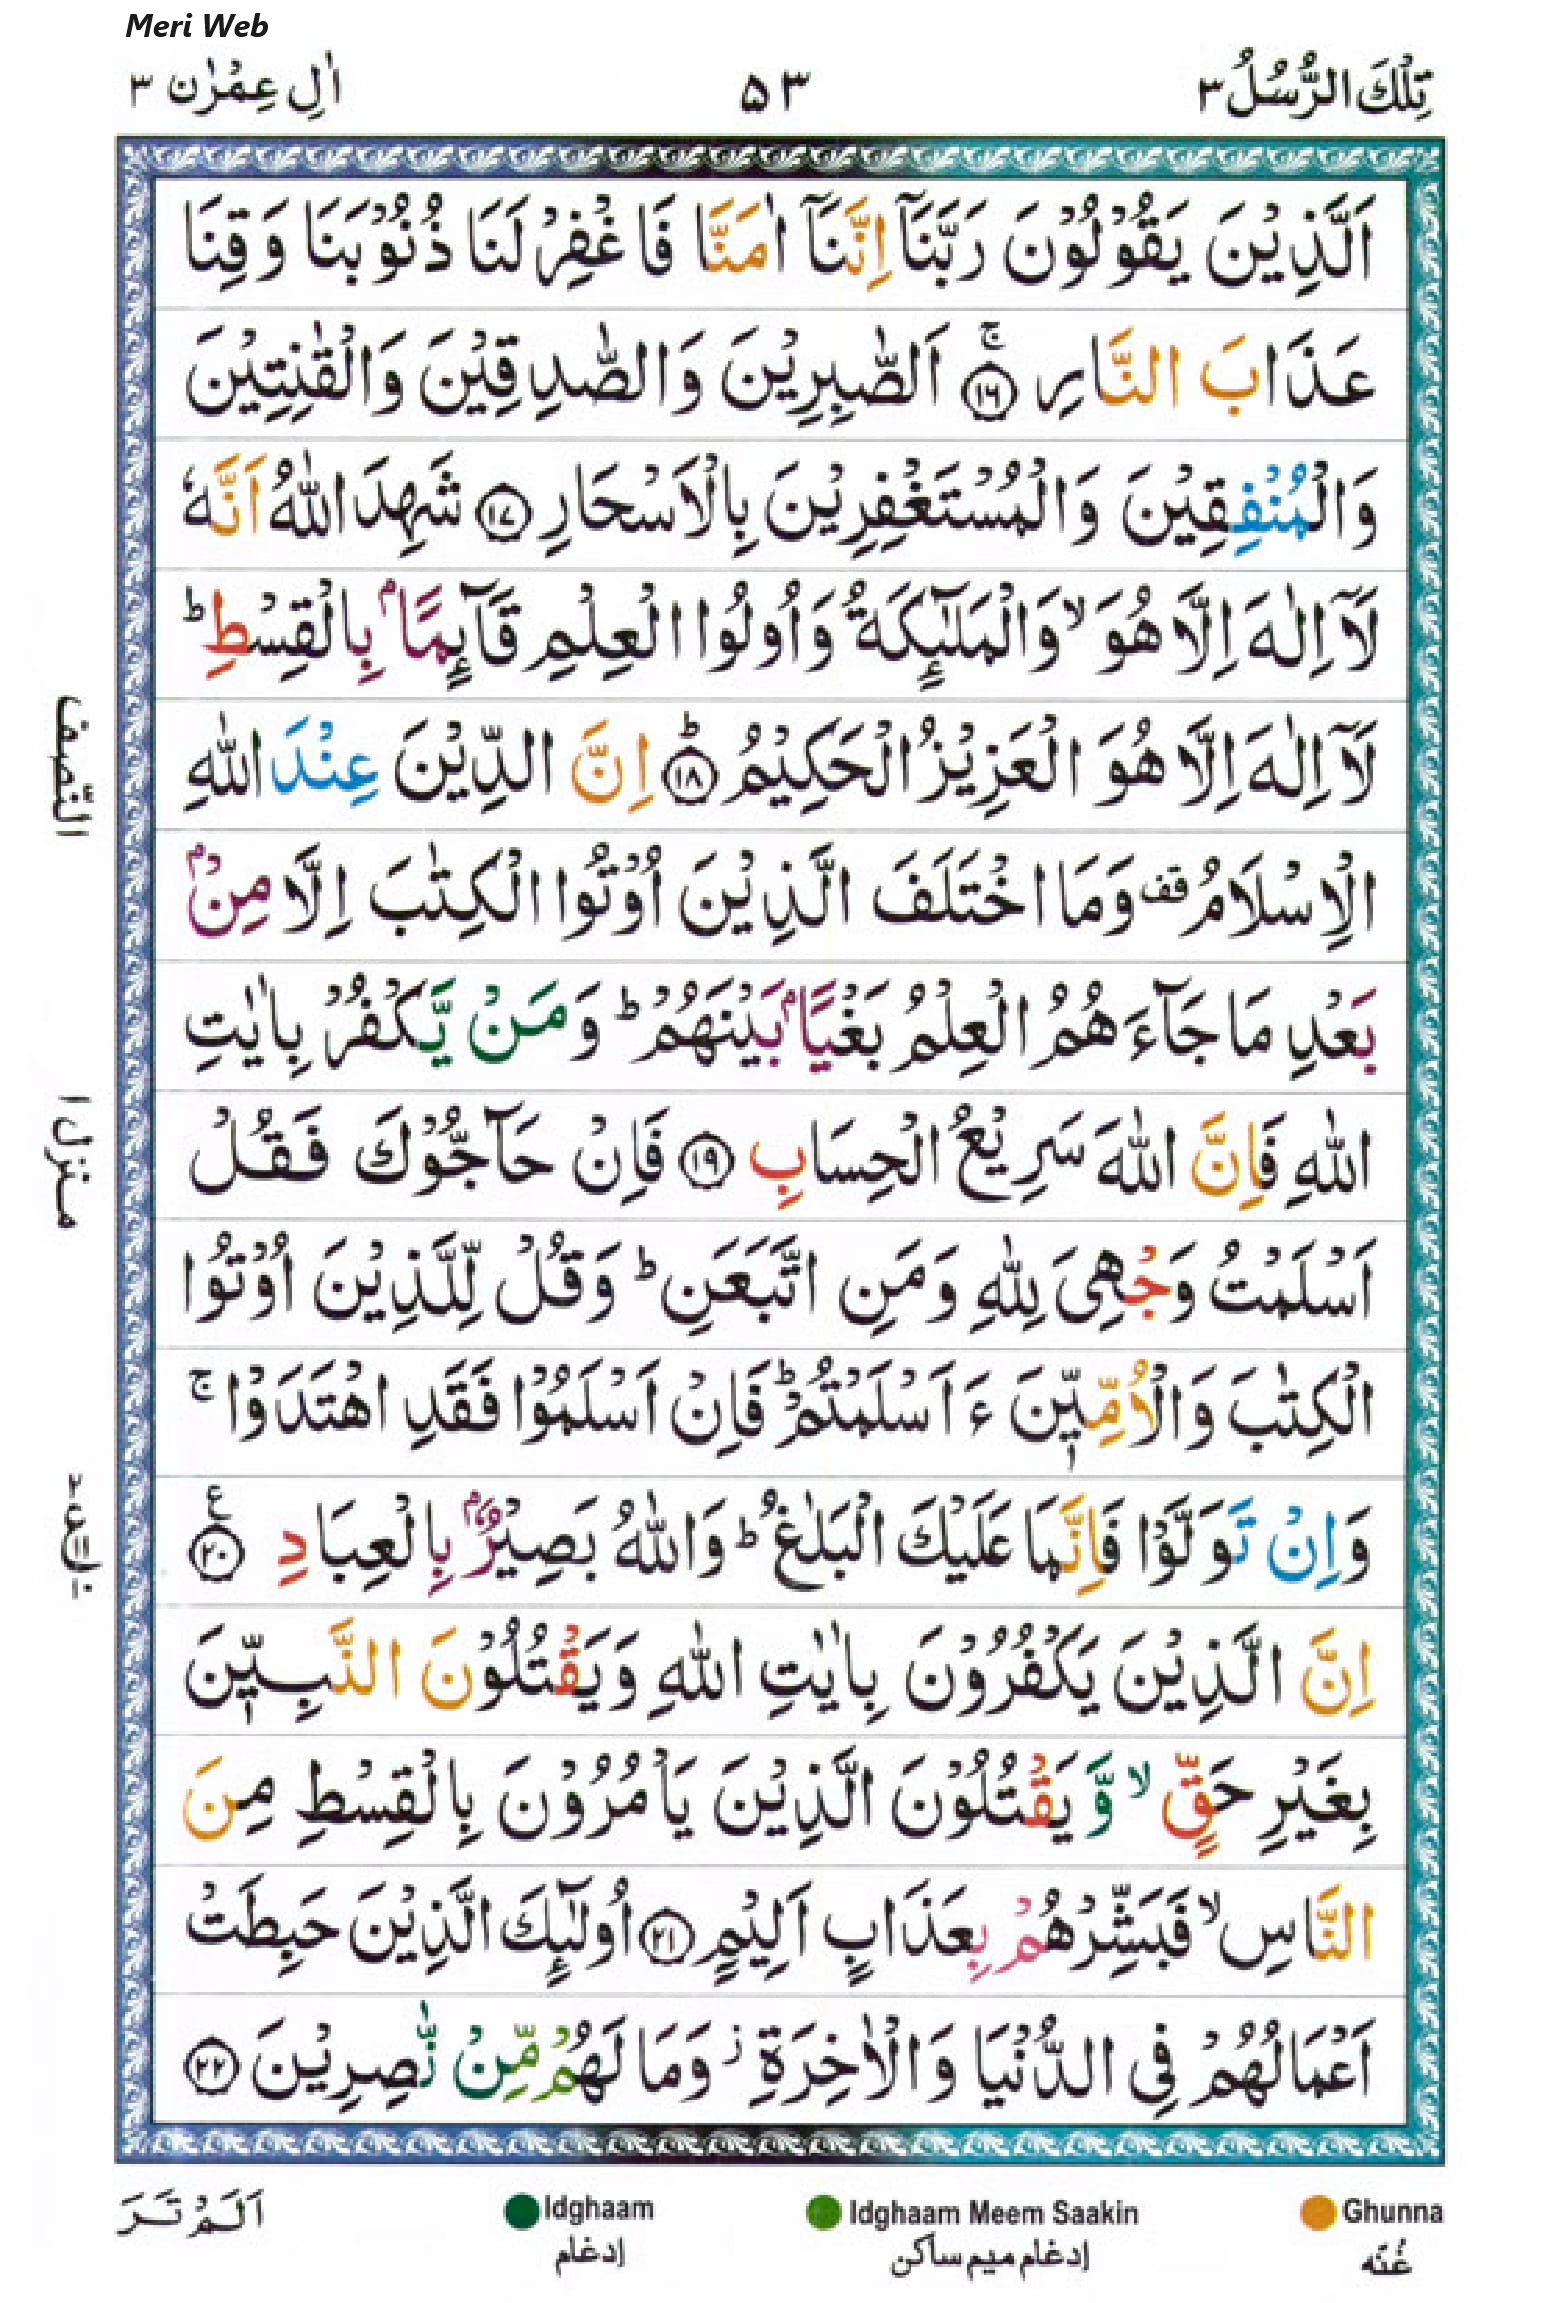 Meri Web
تِلْكَ الرُّسُلُ ٣
۵۳
اٰلِ عِمْرٰن ٣
اَلَّذِيْنَ يَقُوْلُوْنَ رَبَّنَآ اِنَّنَآ اٰمَنَّا فَاغْفِرْ لَنَا ذُنُوْبَنَا وَقِنَا
عَذَابَ النَّارِ ۚ ﴿١٦﴾ اَلصّٰبِرِيْنَ وَالصّٰدِقِيْنَ وَالْقٰنِتِيْنَ
وَالْمُنْفِقِيْنَ وَالْمُسْتَغْفِرِيْنَ بِالْاَسْحَارِ ﴿١٧﴾ شَهِدَ اللّٰهُ اَنَّهٗ
لَآ اِلٰهَ اِلَّا هُوَ ۙ وَالْمَلٰٓئِكَةُ وَاُولُوا الْعِلْمِ قَآئِمًاۢ بِالْقِسْطِ ؕ
لَآ اِلٰهَ اِلَّا هُوَ الْعَزِيْزُ الْحَكِيْمُ ؕ ﴿١٨﴾ اِنَّ الدِّيْنَ عِنْدَ اللّٰهِ
الْاِسْلَامُ قف وَمَا اخْتَلَفَ الَّذِيْنَ اُوْتُوا الْكِتٰبَ اِلَّا مِنْۢ
بَعْدِ مَا جَآءَهُمُ الْعِلْمُ بَغْيًاۢ بَيْنَهُمْ ؕ وَمَنْ يَّكْفُرْ بِاٰيٰتِ
اللّٰهِ فَاِنَّ اللّٰهَ سَرِيْعُ الْحِسَابِ ﴿١٩﴾ فَاِنْ حَآجُّوْكَ فَقُلْ
اَسْلَمْتُ وَجْهِىَ لِلّٰهِ وَمَنِ اتَّبَعَنِ ؕ وَقُلْ لِّلَّذِيْنَ اُوْتُوا
الْكِتٰبَ وَالْاُمِّيّٖنَ ءَاَسْلَمْتُمْ ؕ فَاِنْ اَسْلَمُوْا فَقَدِ اهْتَدَوْا ۚ
وَاِنْ تَوَلَّوْا فَاِنَّمَا عَلَيْكَ الْبَلٰغُ ؕ وَاللّٰهُ بَصِيْرٌۢ بِالْعِبَادِ ﴿٢٠﴾ ع
اِنَّ الَّذِيْنَ يَكْفُرُوْنَ بِاٰيٰتِ اللّٰهِ وَيَقْتُلُوْنَ النَّبِيّٖنَ
بِغَيْرِ حَقٍّ ۙ وَّيَقْتُلُوْنَ الَّذِيْنَ يَاْمُرُوْنَ بِالْقِسْطِ مِنَ
النَّاسِ ۙ فَبَشِّرْهُمْ بِعَذَابٍ اَلِيْمٍ ﴿٢١﴾ اُولٰٓئِكَ الَّذِيْنَ حَبِطَتْ
اَعْمَالُهُمْ فِى الدُّنْيَا وَالْاٰخِرَةِ ز وَمَا لَهُمْ مِّنْ نّٰصِرِيْنَ ﴿٢٢﴾
النّصف
منزل ١
Ghunna
غُنّه
Idghaam Meem Saakin
إدغام ميم ساكن
Idghaam
إدغام
اَلَمْ تَرَ